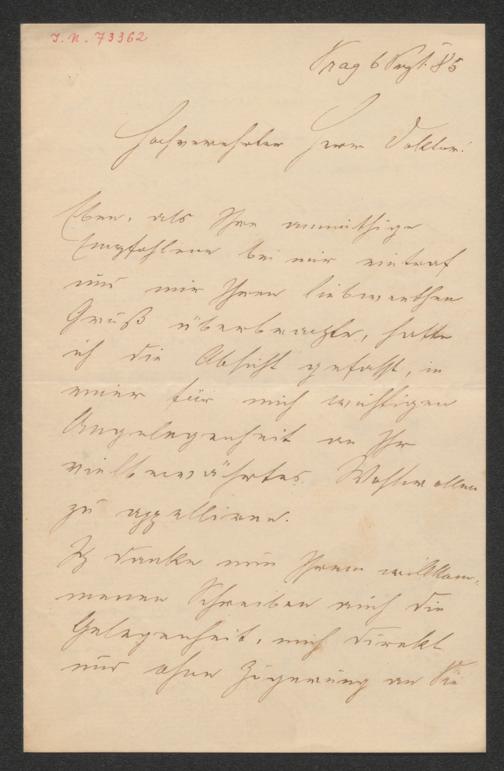 I. N. 73362
Prag 6 Sept. 85
Hochverehrter Herr Doktor!
Eben, als Ihre anmuthige
Empfohlene bei mir eintraf
und mir Ihren liebwerthen
Gruß überbrachte, hatte
ich die Absicht gefaßt, in
einer für mich wichtigen
Angelegenheit an Ihr
vielbewährtes Wohlwollen
zu appelliren.
Ich danke nun Ihrem willkom-
menen Schreiben auch die
Gelegenheit, mich direkt
und ohne Zögerung an Sie